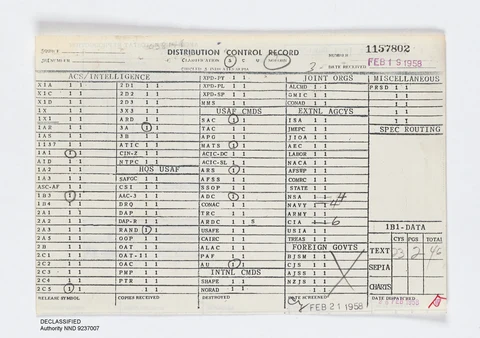 DISTRIBUTION CONTROL RECORD
CLASSIFICATION
S C U
NUMBER
1157802
DATE RECEIVED
FEB 19 1958
ACS/INTELLIGENCE
X1A 1 1
X1C 1 1
X1D 1 1
1X 1 1
1X1 1 1
1A5 1 1
1137 1 1
1A1 1
A1D 1 1
1A2 1 1
1A3 1 1
ASC-AF 1 1
1B3 1
1B4 1 1
2A1 1 1
2A2 1 1
2A3 1 1
2B 1 1
2C1 1 1
2C2 1 1
2C3 1 1
2C4 1 1
2C5 1
2D1 1 1
2D2 1 1
2D3 1 1
3X3 1 1
ARD 1 1
3A 1
3B 1 1
ATIC 1 1
CIN-Z 1 1
NTPC 1 1
HQS USAF
SAFOC 1 1
CSI 1 1
AAC-3 1 1
DRQ 1 1
DAP 1 1
DAP-R 1 1
RAND 1
GOP 1 1
OAT 1 1
OAT-1 1 1
OAC 1 1
PMD 1 1
PTR 1 1
XPD-PY 1 1
XPD-PL 1 1
XPD-SP 1 1
MMS 1 1
USAF CMDS
SAC 1
TAC 1 1
APG 1 1
NATS 1
ACIC-DC 1 1
ACIC-SL 1 1
ARS 1
AFSS 1 1
SSOP 1 1
ADC 1
CONAC 1 1
TRC 1 1
ARDC 1 5
USAFE 1 1
CAIRC 1 1
ALAC 1 1
PAF 1 1
AU 1
INTNL CMDS
SHAPE 1 1
NORAD 1 1
JOINT ORGS
ALCHD 1 1
GMIC 1 1
CONAD 1 1
EXTNL AGCYS
ISA 1 1
JMEPC 1 1
JIOA 1 1
AEC 1 1
LABOR 1 1
NACA 1 1
AFSWP 1 1
COMRC 1 1
STATE 1 1
NSA 4
NAVY 4
ARMY 1 1
CIA 6
USIA 1 1
TREAS 1 1
FOREIGN GOVTS
BJSM 1 1
CJS 1 1
AJSS 1 1
NZJS 1 1
MISCELLANEOUS
PRSD 1 1
SPEC ROUTING
IBI-DATA
CYS PGS TOTAL
TEXT 23 2 46
SEPIA
CHARTS
RELEASE SYMBOL
COPIES RECEIVED
DESTROYED
FEB 21 1958
DATE DISPATCHED
DECLASSIFIED
Authority NND 9237007